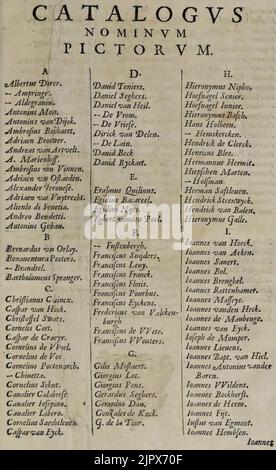 CATALOGVS
NOMINVM
PICTORVM.
A
Albertus Durer.
— Ampringe.
— Aldegrauin.
Antonius Mon.
Antonius van Dijck.
Ambrosius Boschaert.
Adriaen Brouwer.
Andreas van Artvelt.
A. Marienloff.
Ambrosius van Vinnen.
Adriaen van Ostaeden.
Alexander Veronese.
Adriaen van Vuytrecht.
Aliento di Fonetia.
Andreo Bendetti.
Antonius Gobau.
B
Bernardus van Orlay.
Bonauentura Peeters.
— Brandtel.
Bartholomeus Spranger.
C.
Christianus Quincx.
Caspar van Hock.
Christoffel Swats.
Cornelis Cort.
Caspar de Craeyr.
Cornelius de Wael.
Cornelis de Vos.
Cornelius Poetenarch.
— Chinetta.
Cornelius Schut.
Caualier Calabrese.
Caualier Iosepino.
Caualier Libero.
Cornelius Sachtleuen.
Caspar van Eyck.
D.
Dauid Teniers.
Daniel Seghers.
Daniel van Heil.
— De Vrom.
— De Vriese.
Dirick van Delen.
— De Lain.
Dauid Beck
Dauid Ryckart.
E.
Erasmus Quilinus.
Egidius Bacareel.
Egidius Nyts.
Egbert vander Poel.
F.
— Fustenbergh.
Franciscus Snijders.
Franciscus Leuy.
Franciscus Franck.
Franciscus Floris.
Franciscus Pourbus.
Franciscus Eyckens.
Fredericus van Valcken-
burgh
Franciscus de Wete.
Franciscus Wouters.
G.
Gilis Mostaert.
Giorgius Lot.
Giorgius Pens.
Gerardus Seghers.
Gerardus Dau.
Gonzales de Kock.
G. de la Tour.
H.
Hieronymus Nipho.
Hoefnagel Senior.
Hoefnagel Iunior.
Hieronymus Bosch.
Hans Holbeen.
— Hemskercken.
Hendrick de Clerck.
Henricus Bles.
Hermannus Hermit.
Hiepschen Marten.
— Hofman.
Herman Saftleuen.
Hendrick Steenwyck.
Hendrick van Balen.
Hyeronimus Galle.
I.
Ioannes van Hoeck.
Ioannes van Acken.
Ioannes Sanert.
Ioannes Bol.
Ioannes Breughel.
Ioannes Rottenhamer.
Ioannes Massays.
Ioannes vanden Hecke.
Ioannes de Maubeuge.
Ioannes van Eyck.
Ioseph de Momper.
Ioannes Lieuens.
Ioannes Bapt. van Hiel
Ioannes Antonius vander
Baren.
Ioannes Wildens.
Ioannes Bockhorst.
Ioannes de Heem.
Ioannes Fijt.
Iustus van Egmont.
Ioannes Hembsen.
Ioannes